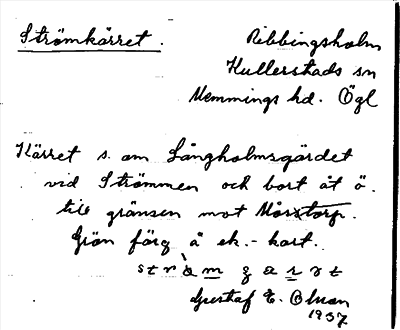 Strömkärret.
Ribbingsholm
Kullerstads sn
Memmings hd. Ögl
Kärret s. om Långholmsgärdet
vid Strömmen och bort åt ö.
till gränsen mot Mårstorp.
Grön färg å ek.-kart.
Gustaf E. Olsson
1937